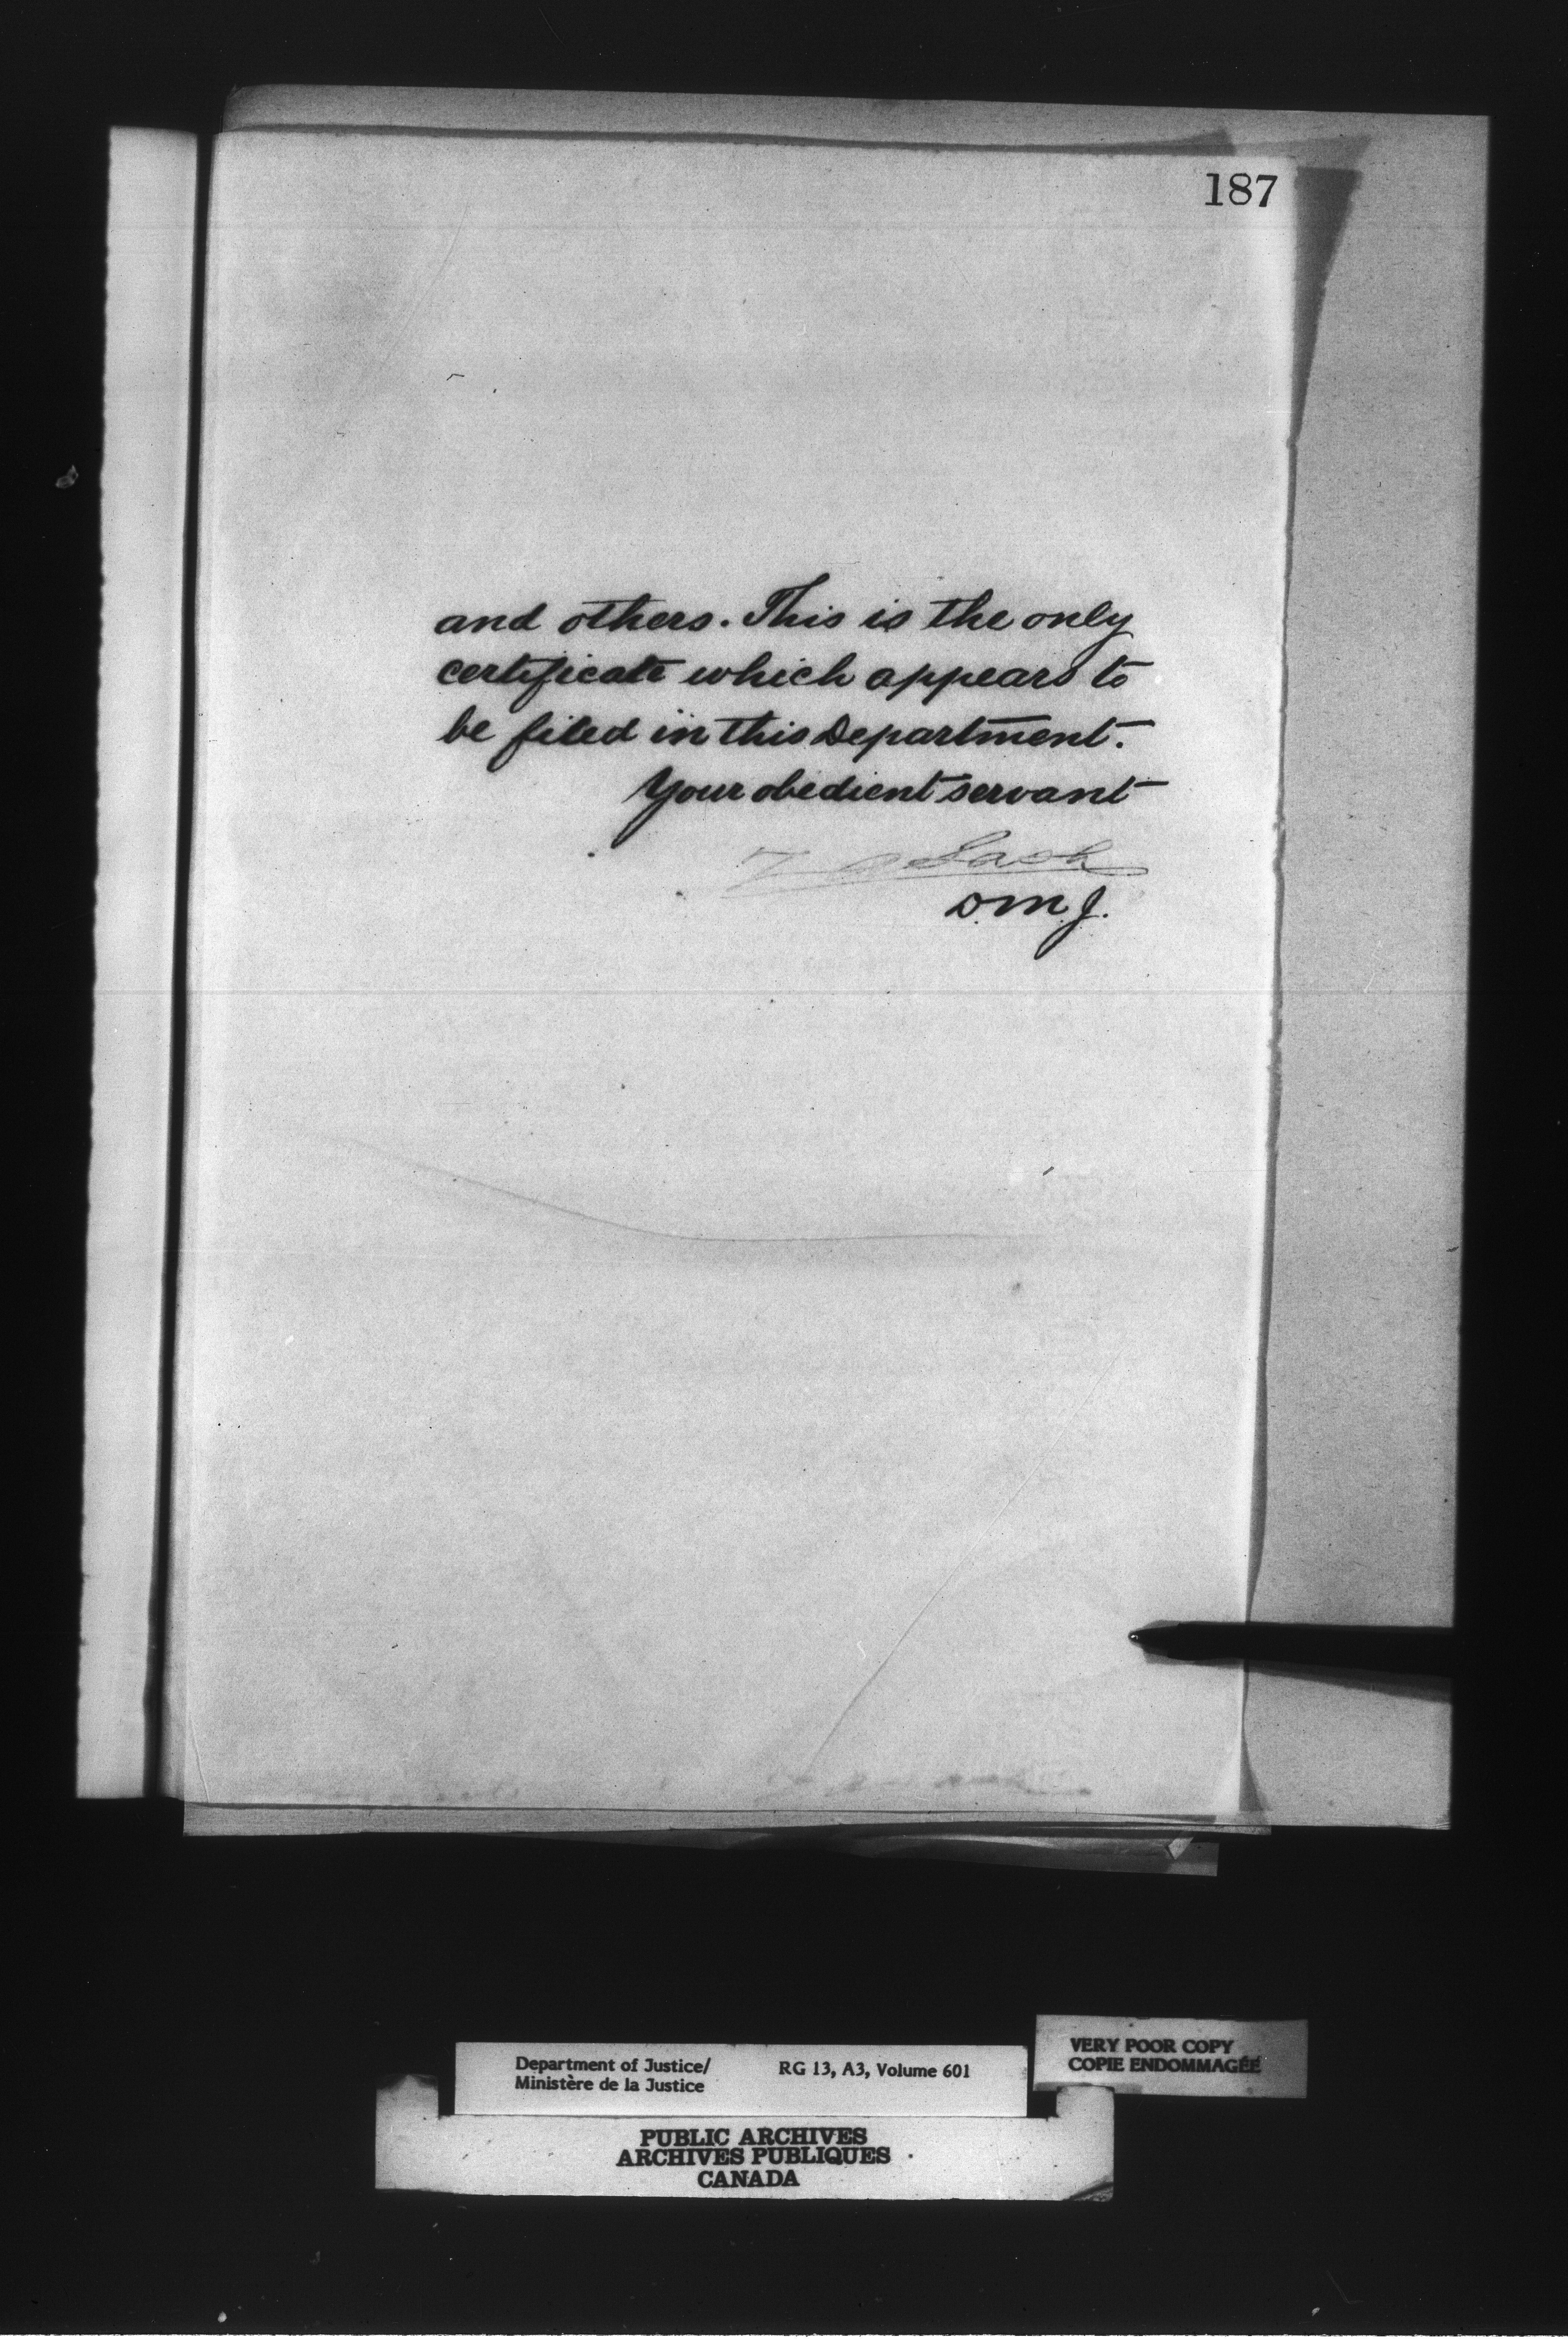 187
and others. This is the only
certificate which appears to
be filed in this Department.
Your obedient servant
Z A Lash
D.M.J.
Department of Justice/
Ministère de la Justice
RG 13, A3, Volume 601
VERY POOR COPY
COPIE ENDOMMAGÉE
PUBLIC ARCHIVES
ARCHIVES PUBLIQUES
CANADA